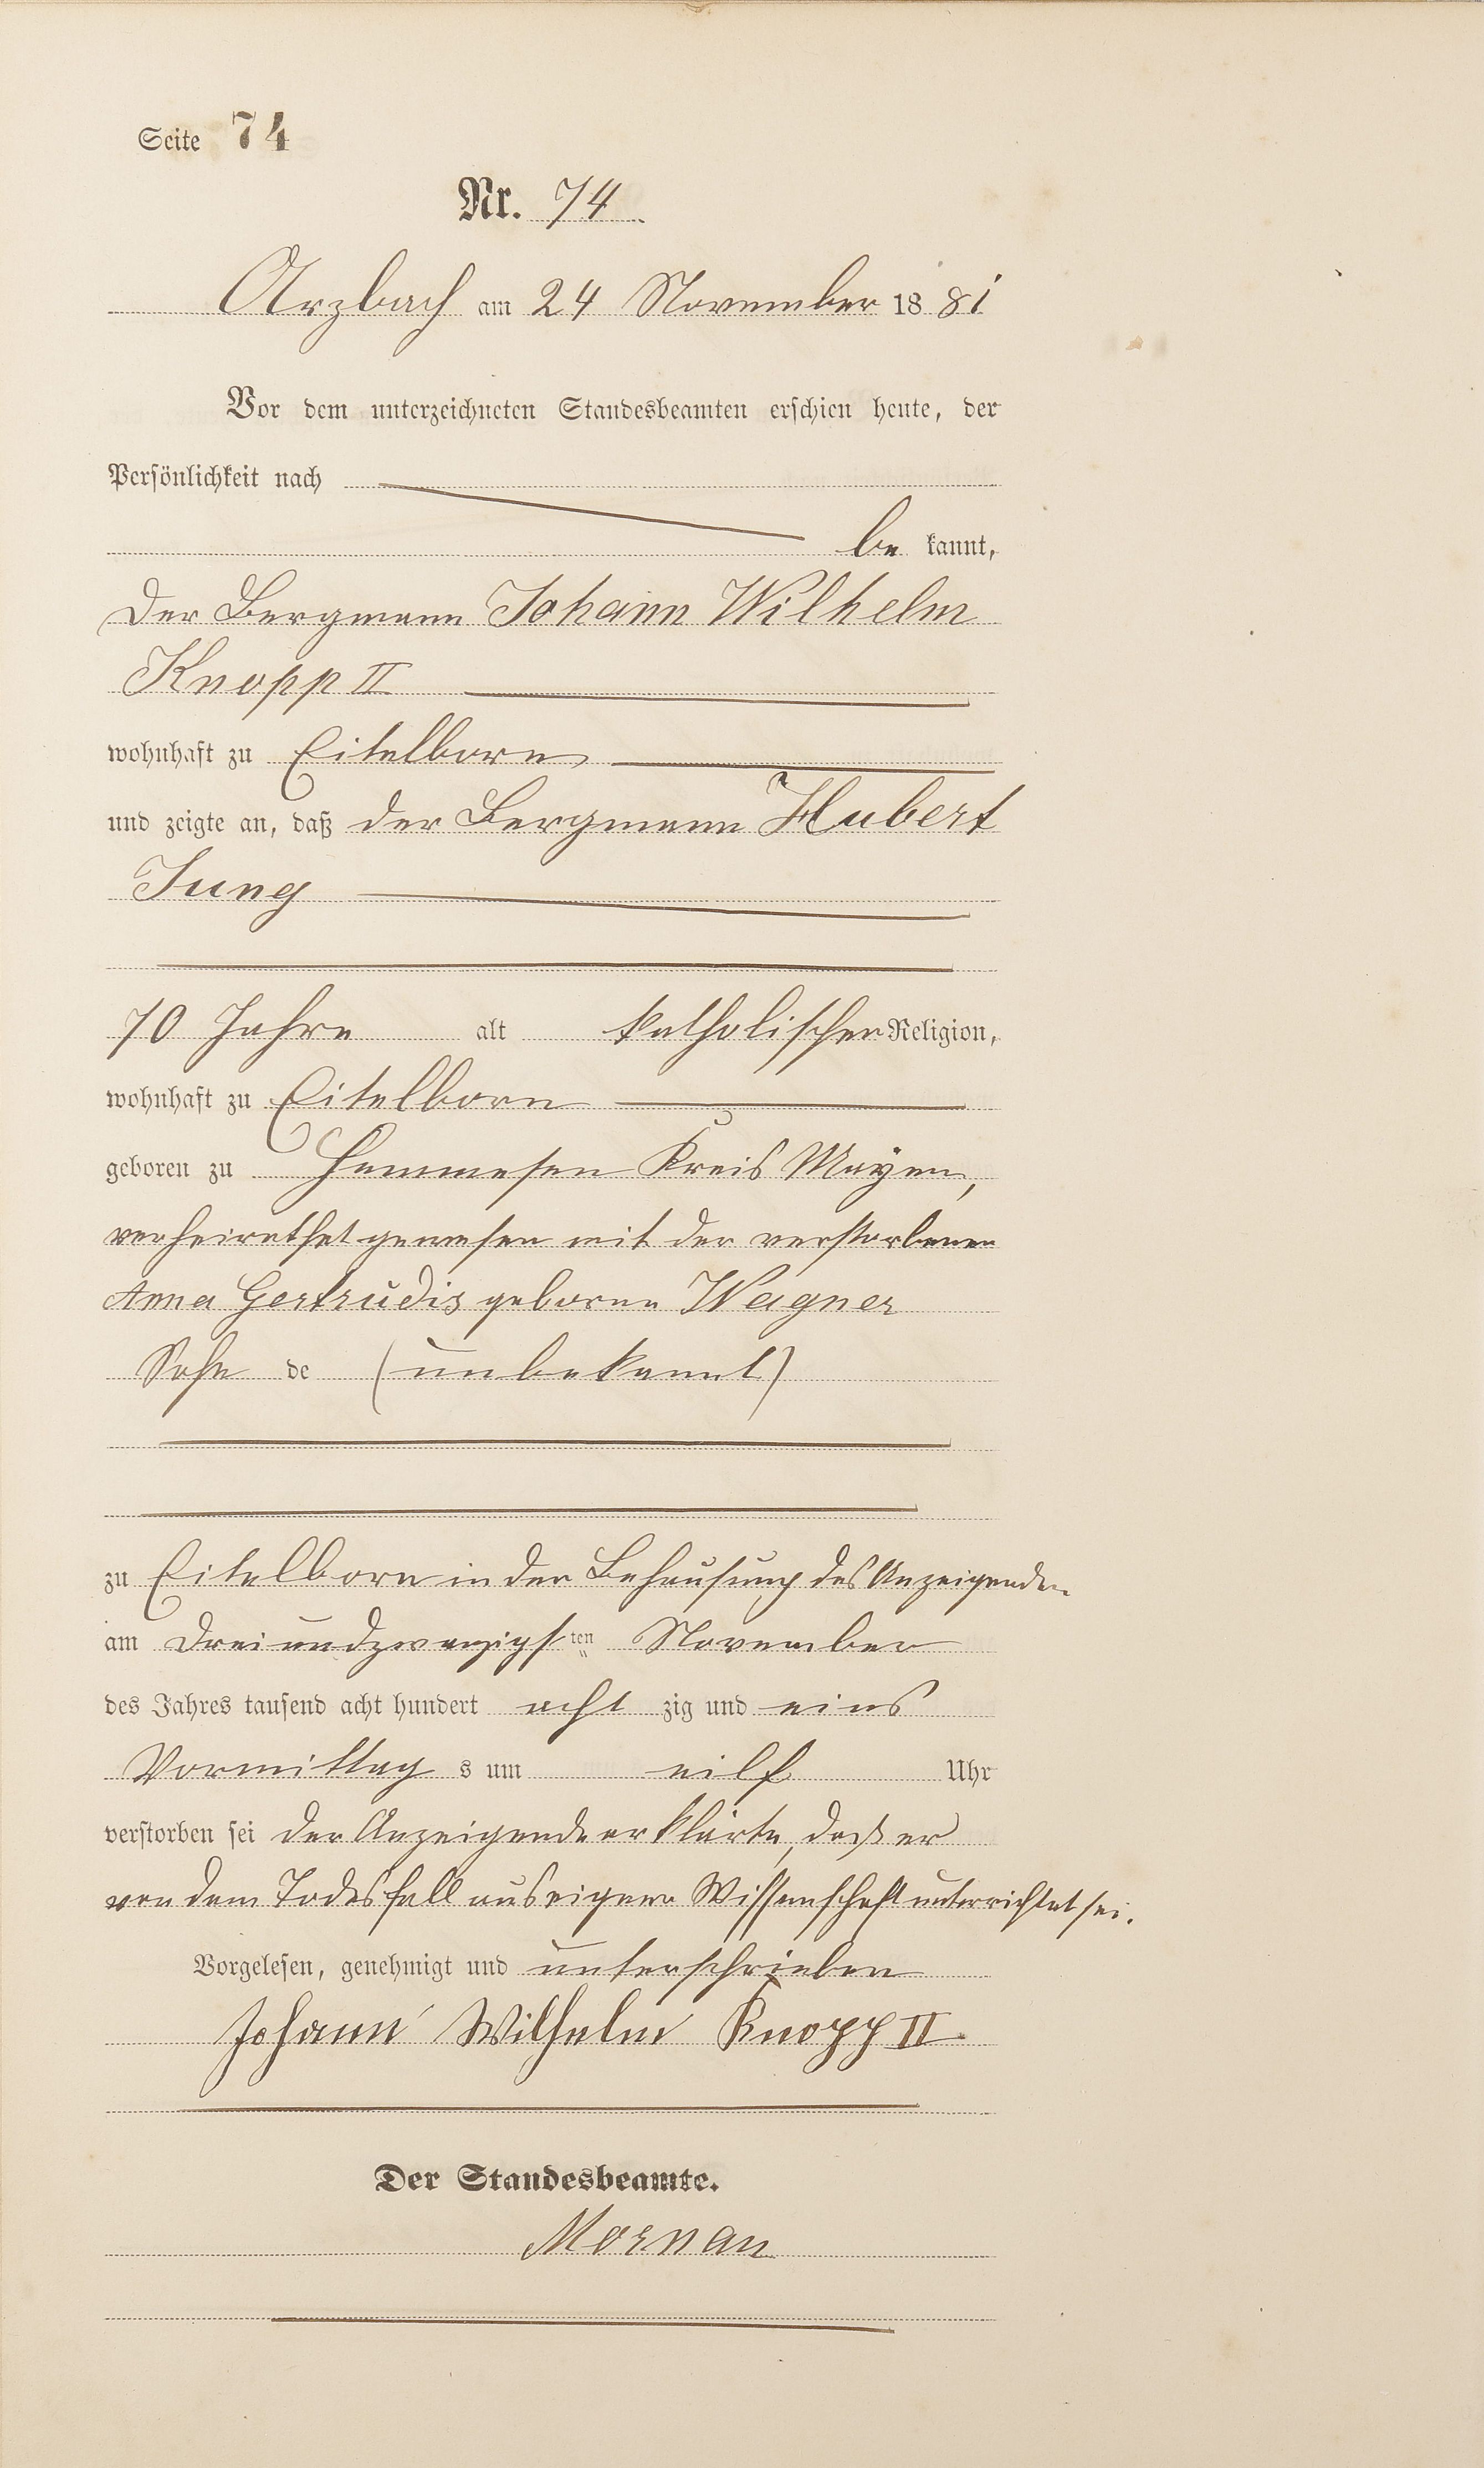 Seite 74
Nr. 74
Arzbach am 24 November 1881
Vor dem unterzeichneten Standesbeamten erschien heute, der
Persönlichkeit nach
be kannt,
der Bergmann Johann Wilhelm
Knopp II
wohnhaft zu Eitelborn
und zeigte an, daß der Bergmann Hubert
Jung
70 Jahre alt katholischer Religion,
wohnhaft zu Eitelborn
geboren zu Kreis Mayen,
verheirathet gewesen mit der verstorbenen
Anna Gertrudis geborne Wagner
Sohn de (unbekannt)
zu Eitelborn in der Behausung des Anzeigenden
am dreiundzwanzigsten November
des Jahres tausend acht hundert acht zig und eins
Vormittag s um eilf Uhr
verstorben sei der Anzeigende erklärte, daß er
von dem Todesfall aus eigener Wissenschaft unterrichtet sei.
Vorgelesen, genehmigt und unterschrieben
Johann Wilhelm Knopp II
Der Standesbeamte.
Mornau